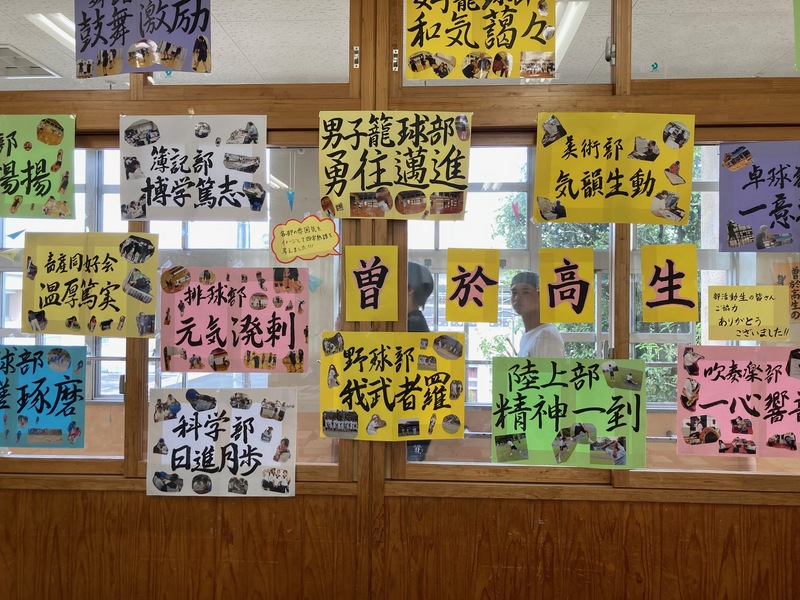 鼓舞激励
女子籠球部
和気藹々
部
揚揚
簿記部
博学篤志
男子籠球部
勇往邁進
美術部
気韻生動
卓球
一意
各部の雰囲気を
イメージして四字熟語を
考えました!!!
畜産同好会
温厚篤実
排球部
元気溌剌
曽於高生
曽於高生の
部活動生の皆さん
ご協力
ありがとう
ございました!!
球部
琢磨
野球部
我武者羅
陸上部
精神一到
吹奏楽部
一心響
科学部
日進月歩